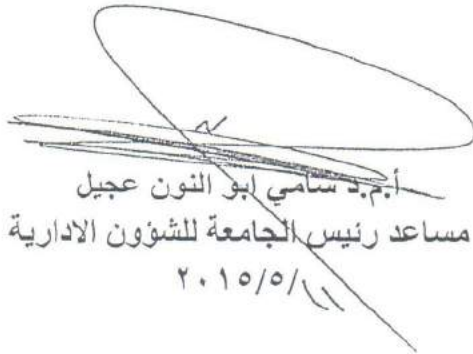 أ.م.د سامي ابو النون عجيل
مساعد رئيس الجامعة للشؤون الادارية
٢٠١٥/٥/١١